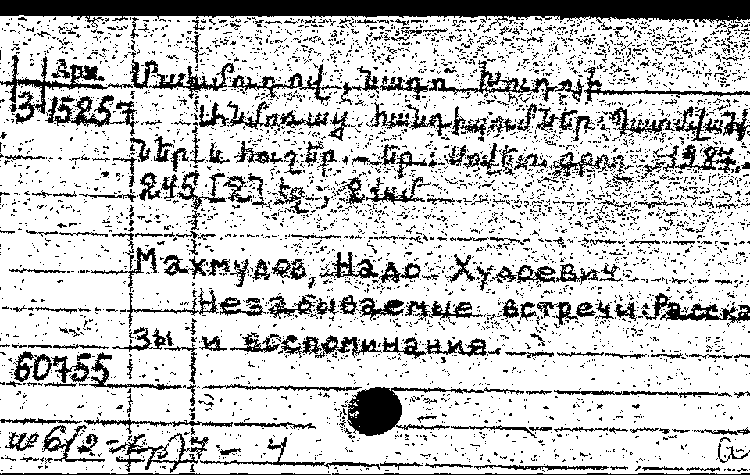 Арм.
3-15257
Մախմուդով, Նադո Խուդոյի
Անմոռաց հանդիպումներ: Պատմվածք
ներ և հուշեր. – Եր.: Սովետ. գրող, 1987.-
245, [2] էջ; 21սմ
Махмудов, Надо Худоевич.
Незабываемые встречи: Расска
зы и воспоминания.
60755
4